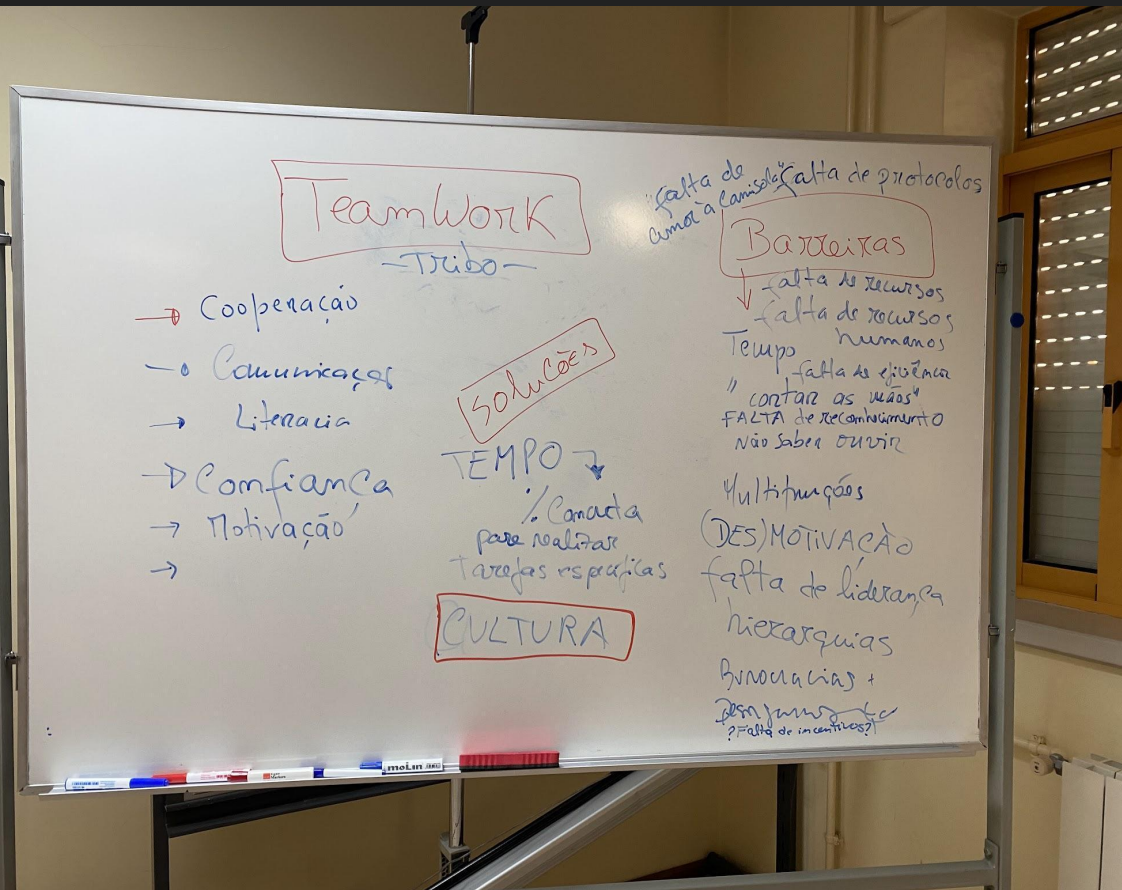 TeamWork
-Tribo-
→ Cooperação
→ Comunicação
→ Literacia
→ Confiança
→ Motivação
→
Soluções
TEMPO
% 
para realizar
Tarefas específicas
CULTURA
"falta de
amor à camisola"
falta de protocolos
Barreiras
falta de recursos
falta de recursos
humanos
Tempo
falta de
"contar as mãos"
FALTA de reconhecimento
Não saber ouvir
Multifunções
(DES)MOTIVAÇÃO
falta de liderança
hierarquias
Burocracias +
?Falta de incentivos?
molin